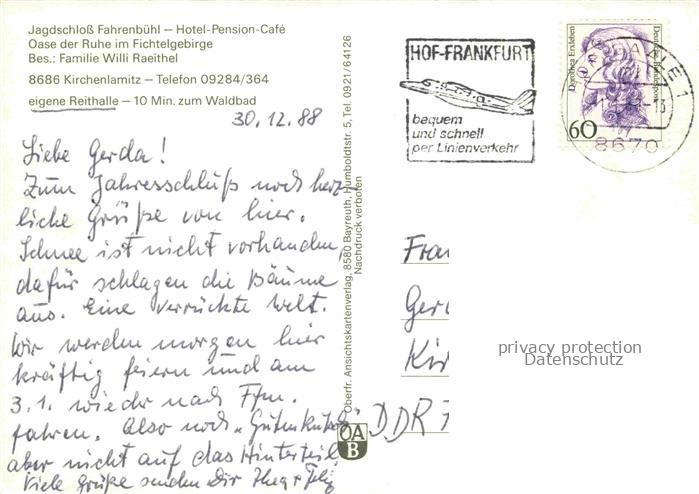 Jagdschloß Fahrenbühl — Hotel-Pension-Café
Oase der Ruhe im Fichtelgebirge
Bes.: Familie Willi Raeithel
8686 Kirchenlamitz — Telefon 09284/364
eigene Reithalle — 10 Min. zum Waldbad
30.12.88
Liebe Gerda!
Zum Jahresschluß noch herz-
liche Grüße von hier.
Schnee ist nicht vorhanden,
dafür schlagen die Bäume
aus. Eine verrückte Welt.
Wir werden morgen hier
kräftig feiern und am
3.1. wieder nach Ffm.
fahren. Also noch „Guten Rutsch"
aber nicht auf das Hinterteil!
Viele Grüße senden Dir
Oberfr. Ansichtskartenverlag, 8580 Bayreuth, Humboldtstr. 5, Tel. 0921/64126
Nachdruck verboten
OA
B
HOF-FRANKFURT
bequem
und schnell
per Linienverkehr
Dorothea Erxleben
Deutsche Bundespost
60
8670
Frau
Ger
Kir
DDR
privacy protection
Datenschutz